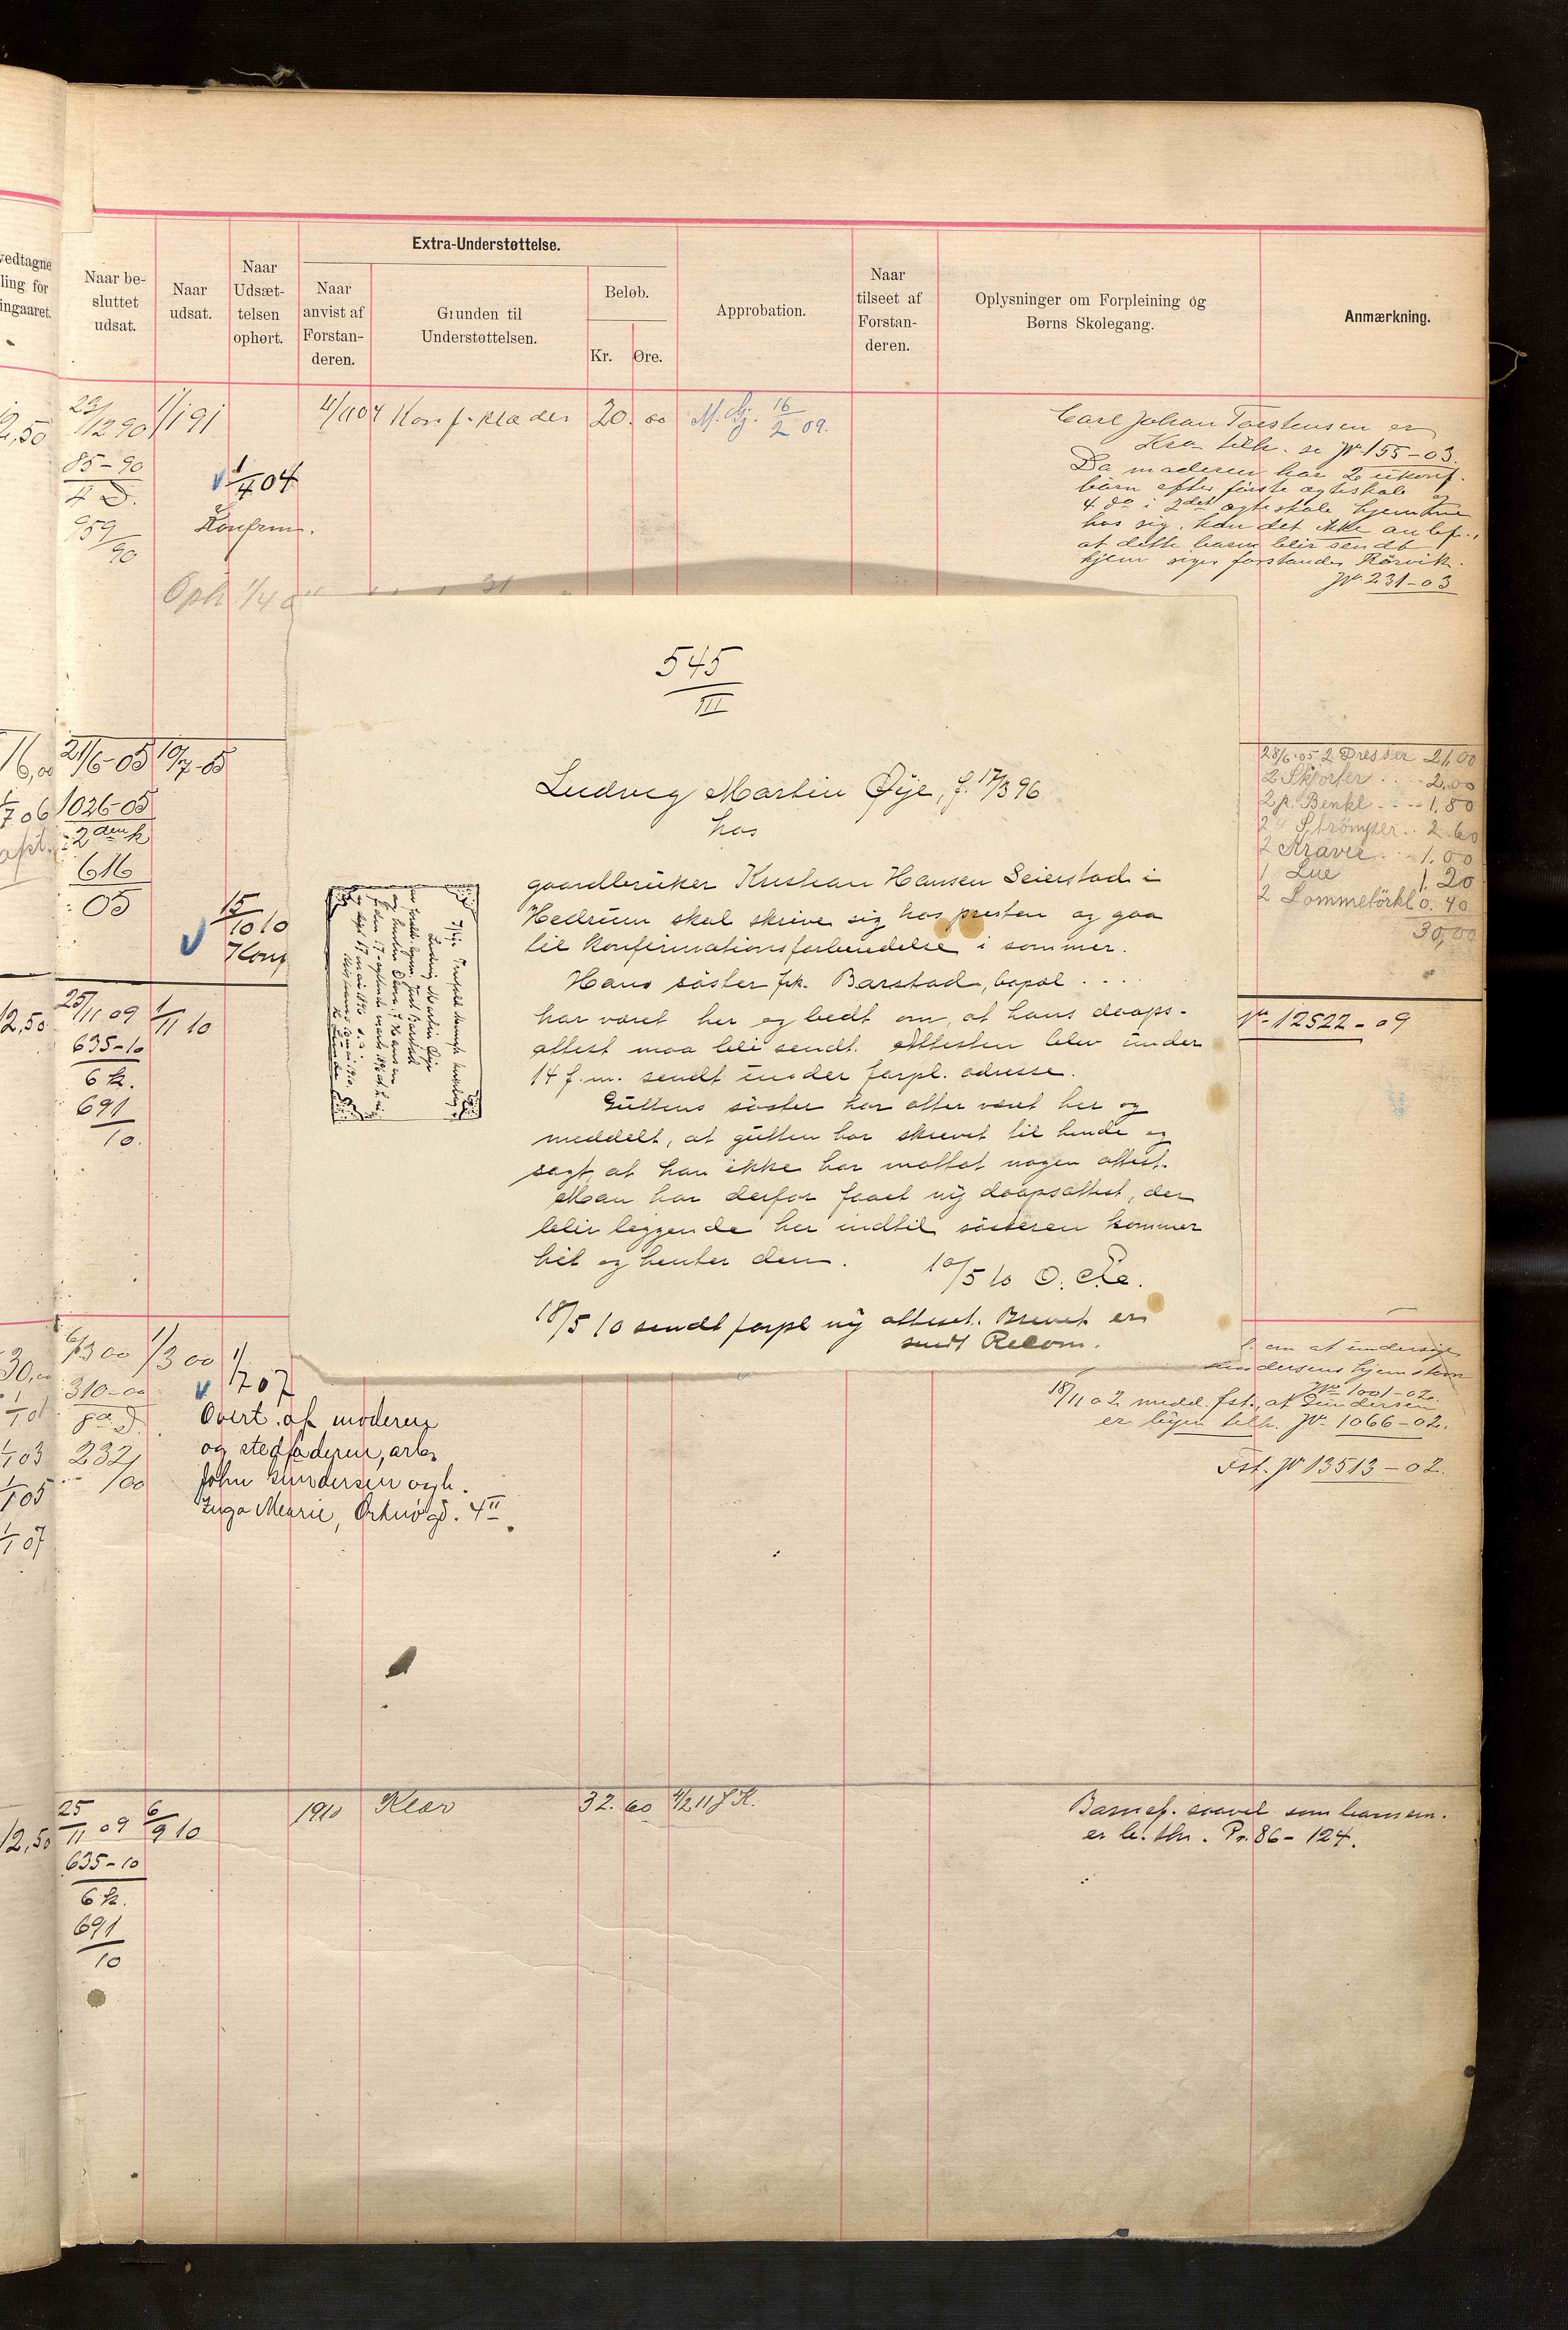 vedtagne
ling for
ingaaret.
Naar be-
sluttet
udsat.
Naar
udsat.
Naar
Udsæt-
telsen
ophørt.
Extra-Understøttelse.
Naar
anvist af
Forstan-
deren.
Grunden til
Understøttelsen.
Beløb.
Kr.
Øre.
Approbation.
Naar
tilseet af
Forstan-
deren.
Oplysninger om Forpleining og
Børns Skolegang.
Anmærkning.
2,50
23/12 90 1/1 91
85-90
4 D.
959/90
1/4 04
Konfirm.
Oph 1/4 0
4/1 04 Konf.klæder 20.00
16/2 09.
Carl Johan Torstensen er
Kra tilh. se Jr. 155-03.
Da moderen har 2 ukonf.
børn efter første ægteskab og
4 do i 2det ægteskab hjemme
hos sig, kan det ikke anbef.,
at dette barn blir sendt
hjem siger forstander Rörvik.
Jr. 231-03
545
III
Ludvig Martin Øye, f. 17/3 96
hos
gaardbruker Kristian Hansen Seierstad i
Hedrum skal skrive sig hos presten og gaa
til konfirmationsforberedelse i sommer.
Hans söster frk. Barstad, bopæl ....
har været her og bedt om, at hans daaps-
attest maa bli sendt. Attesten blev under
14 f. m. sendt under forpl. adresse.
Guttens söster har atter været her og
meddelt, at gutten har skrevet til hende og
sagt, at han ikke har mottat nogen attest.
Man har derfor faaet ny daapsattest, der
blir liggende her indtil søsteren kommer
hit og henter den.
10/5 10
18/5 10 sendt forpl ny attest. Brevet er
sendt Recom.
Ludvig Martin Øye
16,00 21/6-05 10/7-05
1/7 06 1026-05
2den k
616
05
15/10 10
Konf
28/6-05 2 Dresser 21,00
2 Skjorter . . 2,00
2 p. Benkl . . . 1,80
2 " Strömper . . 2.60
2 Kraver . . 1.00
1 Lue 1.20
2 Lommetörkl 0.40
30,00
12,50 25/11 09 1/11 10
635-10
6 k.
691
10.
Jr. 12522-09
30,
6/3 00 1/3 00 1/7 07
310-00
232/00
1/1 03
1/1 05
1/1 07
Overt. af moderen
og stedfaderen, arb.
John Gundersen og h.
Inga Marie, Orknögd. 4 II.
om at undersøge
Gundersens hjemstavn
Jr. 1001-02.
18/11 02 medd. fst., at Gundersen
er byen tilh. Jr. 1066-02.
Fst. Jr 13513-02.
12,50 25/11 09 6/9 10
635-10
6 k.
691
10
1910 Klær 32.60 4/2 11
Barnef. saavel som barnem.
er b. thr. Pr. 86-124.